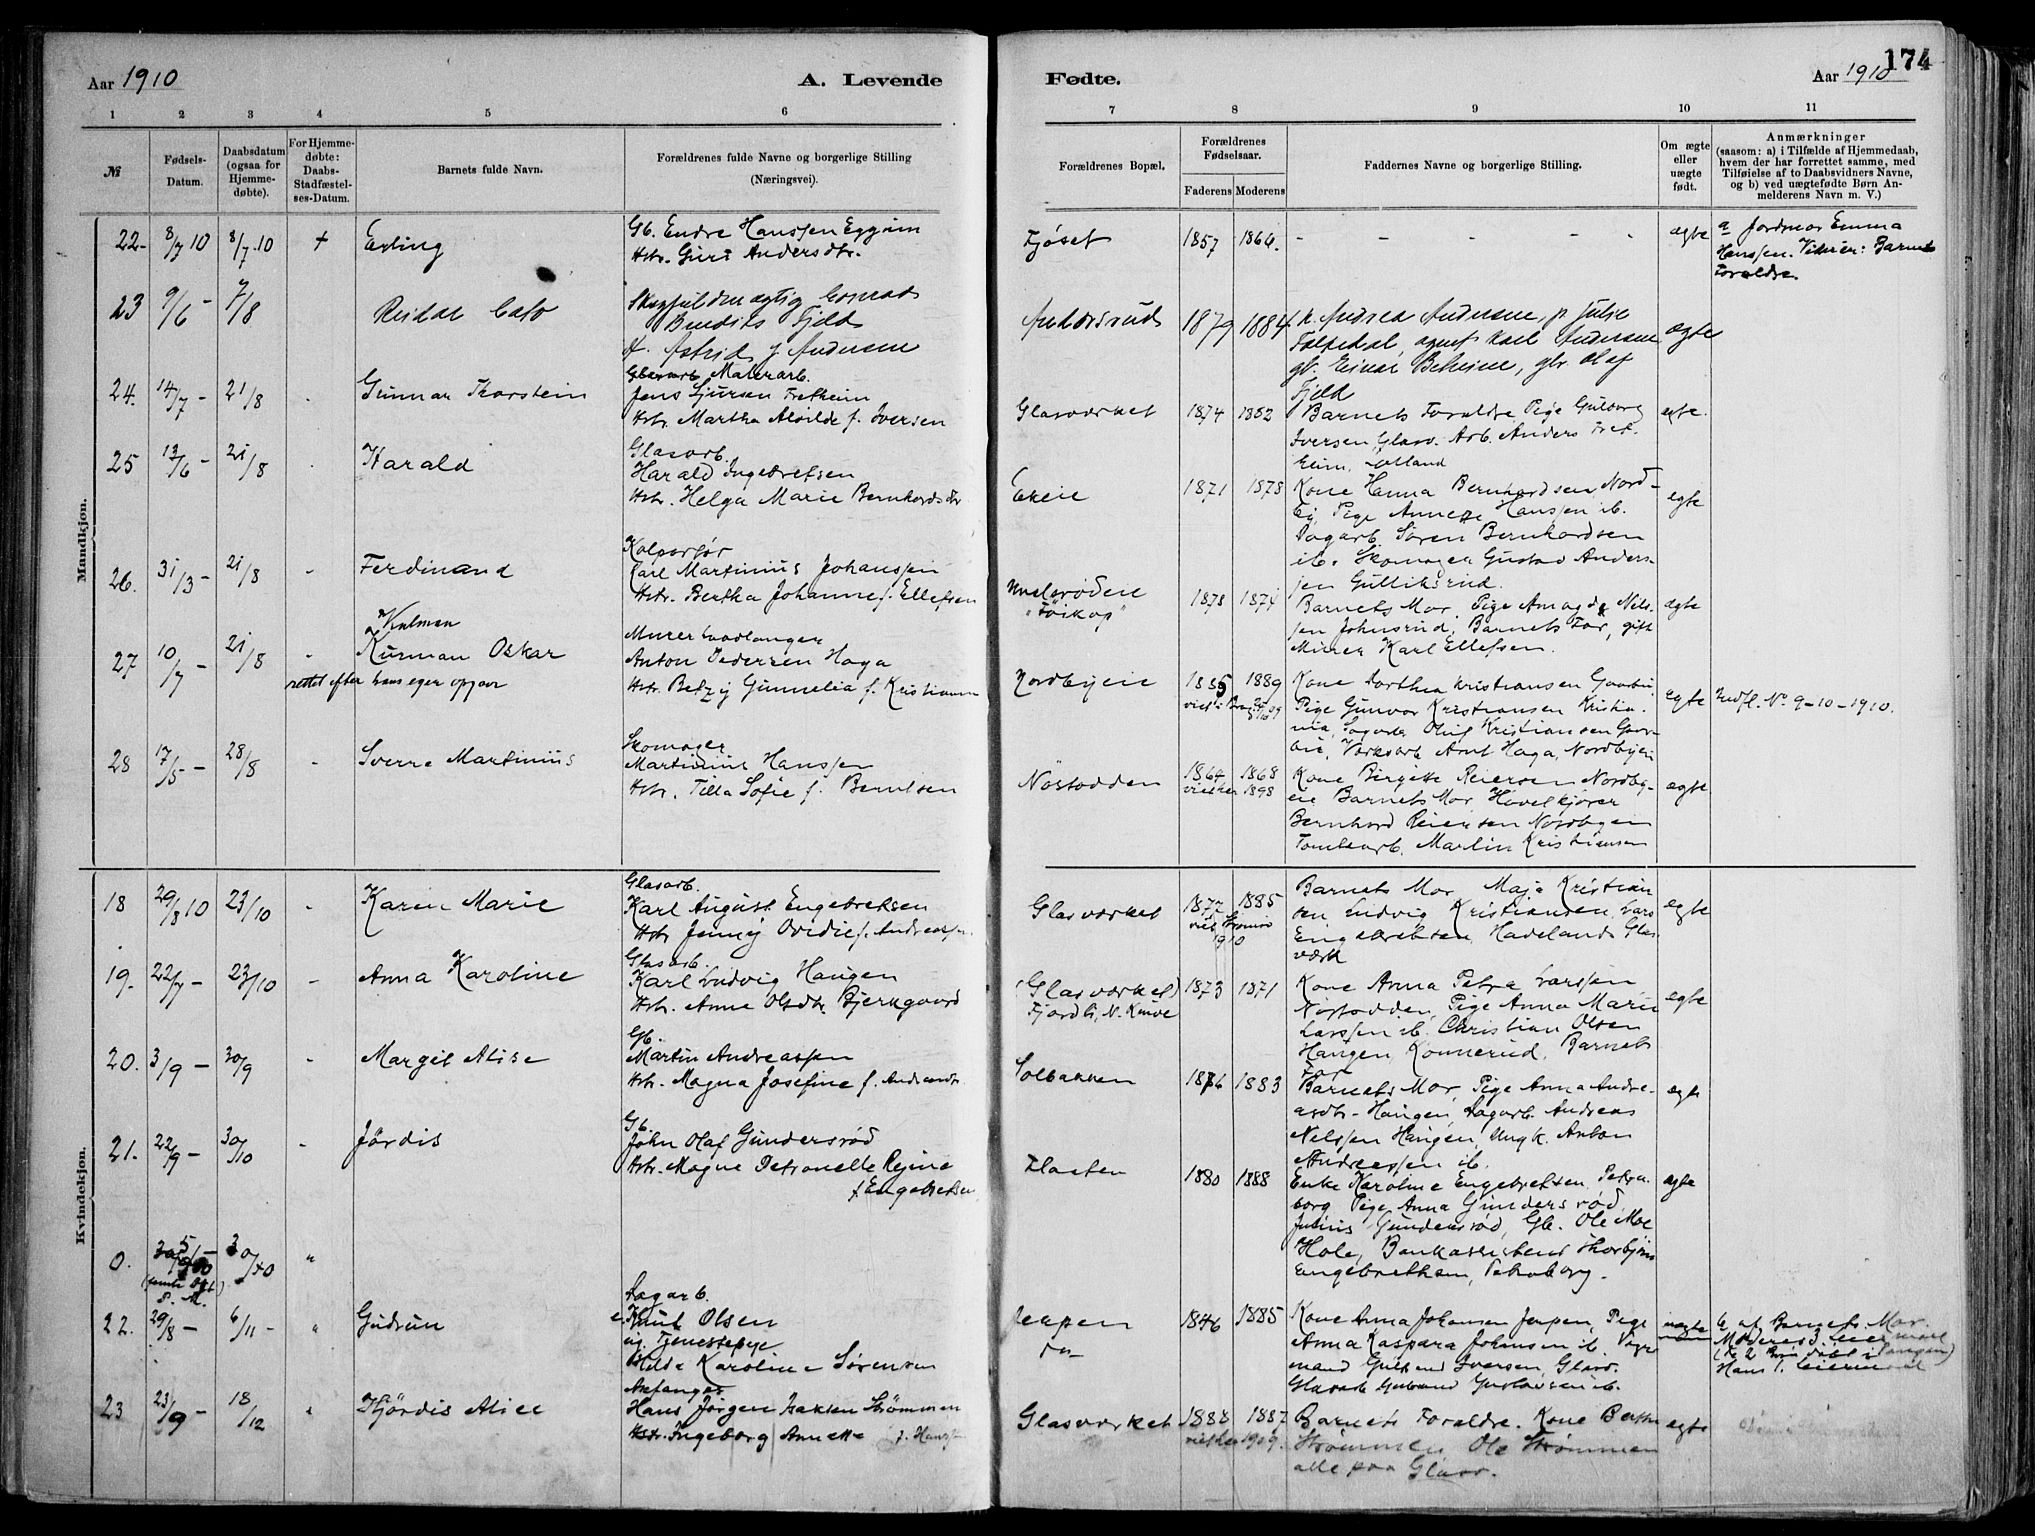 174
Aar 1910
A. Levende
Fødte.
Aar 1910
1 2 3 4 5 6 7 8 9 10 11
№
Fødsels-
Datum.
Daabsdatum
(ogsaa for
Hjemme-
døbte).
For Hjemme-
døbte:
Daabs-
Stadfæstel-
ses-Datum.
Barnets fulde Navn.
Forældrenes fulde Navne og borgerlige Stilling
(Næringsvei).
Forældrenes Bopæl.
Forældrenes
Fødselsaar.
Faderens Moderens
Faddernes Navne og borgerlige Stilling.
Om ægte
eller
uægte
født.
Anmærkninger
(saasom: a) i Tilfælde af Hjemmedaab,
hvem der har forrettet samme, med
Tilføielse af to Daabsvidners Navne,
og b) ved uægtefødte Børn An-
melderens Navn m. V.)
Mandkjøn.
22- 8/7 10 8/7.10 + Erling
Gb. Endre Hanssen Eggjim
Hstr. Guri Andersdtr.
Fjøset 1857 1864. - - - - - ægte
a Jordmor Emma
Hanssen. Vidner: Barnets
Forældre.
23 9/6 - 7/8 Reidar Cato
Skogfuldmægtig Conrad
Bendiks Fjeld
H. Astrid f Andersen
Andersrud 1879 1884
k. Andrea Andersen, p Julie
Karl Andersen
gb. Einar Beheim, gbr. Olaf
Fjeld
ægte
24. 14/7 - 21/8 Gunnar Thorstein
Glasarb Malerarb.
Jens Sjursen Fretheim
Hstr. Martha Alvilde f. Iversen
Glasværket 1874 1852
Barnets Forældre Pige Gulborg
Iversen, Glasv. Arb. Anders Fret-
heim, Jølland
egte.
25 13/6 - 21/8 Harald
Glasarb.
Harald Ingebretsen
Hstr. Helga Marie Bernhardsdtr
Ekeie 1871 1878
Kone Hanna Bernhardsen, Nord-
by, Pige Annette Hanssen ib.
Dagarb Søren Bernhardsen
ib. Skomager Gustav Anders-
sen Gulliksrud.
egte
26. 31/3 - 21/8 Ferdinand
Kolportør
Karl Martinius Johanssen
Hstr. Bertha Johanne f. Ellefsen
Hvalsrødeie
"Føikop"
1878 1874
Barnets Mor, Pige Amagda Nils-
sen Johnsrud, Barnets Far, gift
Murer Karl Ellefsen.
ægte
27 10/7 - 21/8
Kulman
Kurman Oskar
rettet efter hans egen opgave
Murer haandlanger
Anton Pedersen Haga
Hstr. Betzy Gunnelia f. Kristiansen
Nordbyeie 1885 1889
Kone Dorthea Kristiansen Gaarbu,
Pige Gunvor Kristiansen Kristia-
nia, Sagarb. Oluf Kristiansen Gaar-
bu, Værksarb Arnt Haga, Nordbyeie
egte
Indfl. No 9-10-1910.
28 17/5 - 28/8 Sverre Martinius
Skomager
Martinius Hanssen
Hstr. Tilla Sofie f. Berntsen
Nøstodden 1864 1868
viet her 1898
Kone Birgitte Reiersen Nordby-
eie Barnets Mor, Høvelkjører
Bernhard Reiersen Nordbyeie
Tomtearb. Martin Kristiansen
egte
Kvindekjøn.
18 29/8 10 23/10 Karen Marie
Glasarb.
Karl August Engebretsen
Hstr Jenny Ovidie f. Andreassen
Glasværket 1877 1885
viet Strømsø
1910
Barnets Mor, Maja Kristian
sen Ludvig Kristiansen, Lars
Engebretsen, Hadelands Glas-
værk
egte
19. 22/7 - 23/10 Anna Karoline
Glasarb.
Karl Ludvig Haugen
Hstr. Anne Olsdtr. Bjerkgaard
(Glasværket)
Fjordli, N. Knive
1873 1871
Kone Anna Petra Larssen
Nøstodden, Pige Anna Marie
Larssen ib. Christian Olsen
Haugen, Konnerud. Barnets
Far
egte
20. 3/9 - 30/9 Margit Alise
Gb.
Martin Andreassen
Hstr. Magna Josefine f. Andreasdtr.
Solbakken 1876 1883
Barnets Mor, Pige Anna Andre-
asdtr. Haugen, Sagarb. Andreas
Nelssen Haugen, Ungk. Anton
Andreassen ib.
egte
21. 22/9 - 30/10 Jördis
Gb.
John Olaf Gundersrød
Hstr. Magne Petronelle Regine
f Engebretsen
Flaaten 1880 1888
Enke Karoline Engebretsen, Petra-
borg Pige Anna Gundersrød
Julius Gundersrød, Gb. Ole Moe
Hole, Bankassistent Thorbjørn
Engebrethsen, Petraborg.
egte
0.
P. M.
22. 29/8 - 6/11 - Gudrun
Sagarb.
e Knut Olsen
ug. Tjenestepige
Hilda Karoline Sørensen
Jerpen
do
1846 1885
Kone Anna Johansen Jerpen, Pige
Anna Kaspara Johnsen ib.
Gulbrand Iversen, Glasv.
Glasarb Gulbrand Gustavsen ib.
uægte
b af Barnets Mor.
Moderens 3 leiermaal
Hans 1. leiermaal
23 23/9 - 18/12 Hjördis Alice
Anfanger
Hans Jørgen Isaksen Strømmen
Hstr. Ingeborg Annette f. Hanss
Glasværket 1888 1887
viet her 1909.
Barnets Forældre. Kone Bertha
Strømmen, Ole Strømmen
alle paa Glasv.
egte